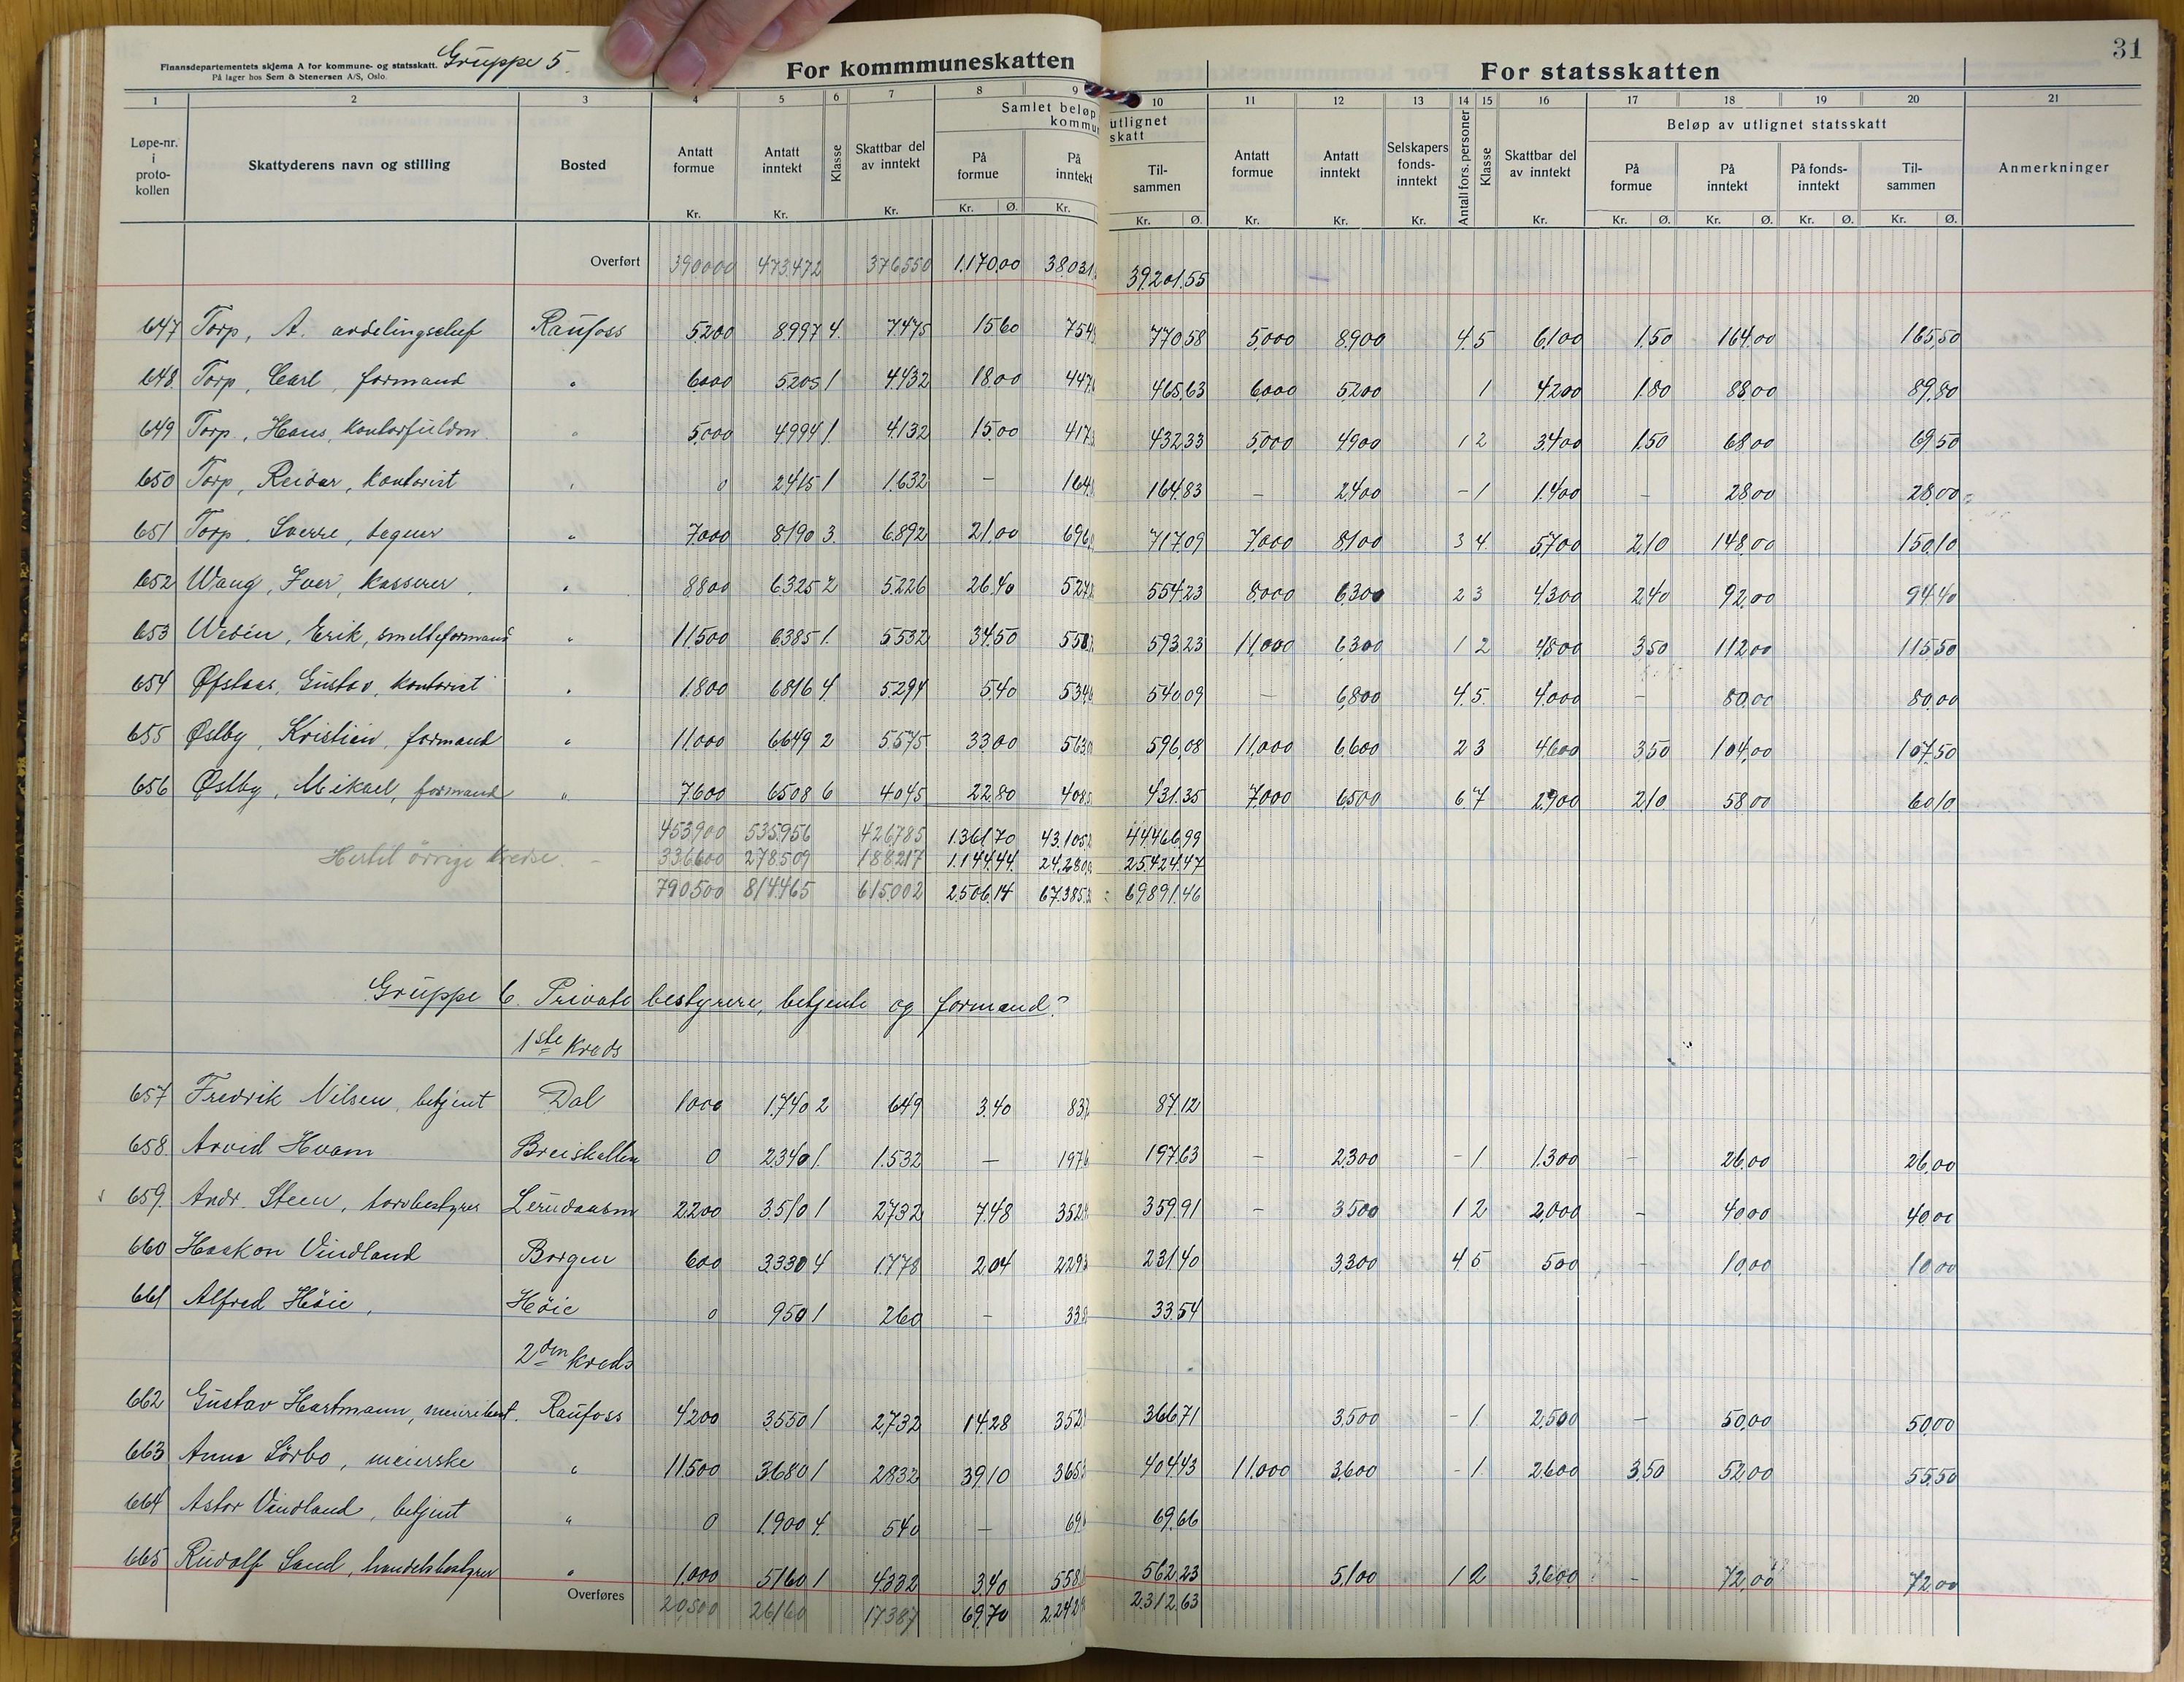 Finansdepartementets skjema A for kommune- og statsskatt. Gruppe 5.
På lager hos Sem & Stenersen A/S, Oslo.
For kommmuneskatten
For statsskatten
31
1 2 3 4 5 6 7 8 9 10 11 12 13 14 15 16 17 18 19 20 21
Løpe-nr. i proto-kollen
Skattyderens navn og stilling
Bosted
Antatt formue Kr.
Antatt inntekt Kr.
Klasse
Skattbar del av inntekt Kr.
Samlet beløp utlignet
kommu skatt
På formue Kr. Ø.
På inntekt Kr.
Til-sammen Kr. Ø.
Antatt formue Kr.
Antatt inntekt Kr.
Selskapers fonds-inntekt Kr.
Antall fors. personer
Klasse
Skattbar del av inntekt Kr.
Beløp av utlignet statsskatt
På formue Kr. Ø.
På inntekt Kr. Ø.
På fonds-inntekt Kr. Ø.
Til-sammen Kr. Ø.
Anmerkninger
Overført 390000 473.472 376550 1.170.00 38.031 39.201.55
647 Torp, A. avdelingschef Raufoss 5.200 8.997 4. 7.475 15.60 754 770.58 5.000 8.900 4 5 6.100 1.50 164.00 165.50
648. Torp, Carl, formand " 6.000 5.205 1 4.432 18.00 447 465.63 6.000 5.200 1 4.200 1.80 88.00 89.80
649 Torp, Hans, kontorfuldm. " 5.000 4.994 1. 4.132 15.00 417 432.33 5.000 4.900 1 2 3.400 1.50 68.00 69.50
650 Torp, Reidar, kontorist " 0 2.415 1 1.632 — 164 164.83 – 2.400 – 1 1.400 – 28.00 28.00
651 Torp, Sverre, tegner " 7.000 8.190 3. 6.892 21.00 696 717.09 7.000 8.100 3 4 5.700 2.10 148.00 150.10
652 Wang, Iver, kasserer. " 8.800 6.325 2 5.226 26.40 527 554.23 8.000 6.300 2 3 4.300 2.40 92.00 94.40
653 Webén, Erik, smelteformand " 11.500 6.385 1. 5.532 34.50 558 593.23 11.000 6.300 1 2 4.800 3.50 112.00 115.50
654 Øfstaas, Gustav, kontorist " 1.800 6.816 4. 5.294 5.40 534 540.09 – 6.800 4 5. 4.000 – 80.00 80.00
655 Østby, Kristian, formand " 11.000 6.649 2 5.575 33.00 563 596.08 11.000 6.600 2 3 4.600 3.50 104.00 107.50
656 Østby, Mikael, formand " 7.600 6.508 6 4.045 22.80 408 431.35 7.000 6.500 6 7 2.900 2.10 58.00 60.10
453900 535.956 426785 1.361.70 43.105 44.466.99
Hertil övrige kredse. – 336.600 278.509 188.217 1.144.44 24.280 25.424.47
790.500 814.465 615.002 2.506.14 67.385 69.891.46
Gruppe 6. Private bestyrere, betjente og formænd?
1ste kreds
657 Fredrik Nilsen, betjent Dal 1000 1.740 2 649 3.40 83 87.12
658. Arvid Hvam Breiskallen 0 2.340 1. 1.532 — 197 197.63 – 2.300 – 1 1.300 – 26.00 26.00
659. Andr. Steen, torvbestyrer 2.200 3.510 1 2.732 7.48 352 359.91 – 3.500 1 2 2.000 – 40.00 40.00
660 Haakon Vindland Borgen 600 3.330 4 1.778 2.04 229 231.40 3.300 4 5 500 – 10.00 10.00
661 Alfred Höie, Höie 0 950 1 260 – 33 33.54
2den kreds
662 Gustav Hartmann, Raufoss 4.200 3.550 1 2.732 14.28 352 366.71 3.500 – 1 2.500 – 50.00 50.00
663 Anna Sörbo, meierske " 11.500 3.680 1 2.832 39.10 365 404.43 11.000 3.600 – 1. 2.600 3.50 52.00 55.50
664 Astor Vindland, betjent " 0 1.900 4. 540 — 69 69.66
665 Rudolf Sand, handelsbestyrer " 1.000 5.160 1 4.332 3.40 558 562.23 5.100 1 2 3.600 – 72.00 72.00
Overføres 20.500 26.160 17387 69.70 2.242 2.312.63